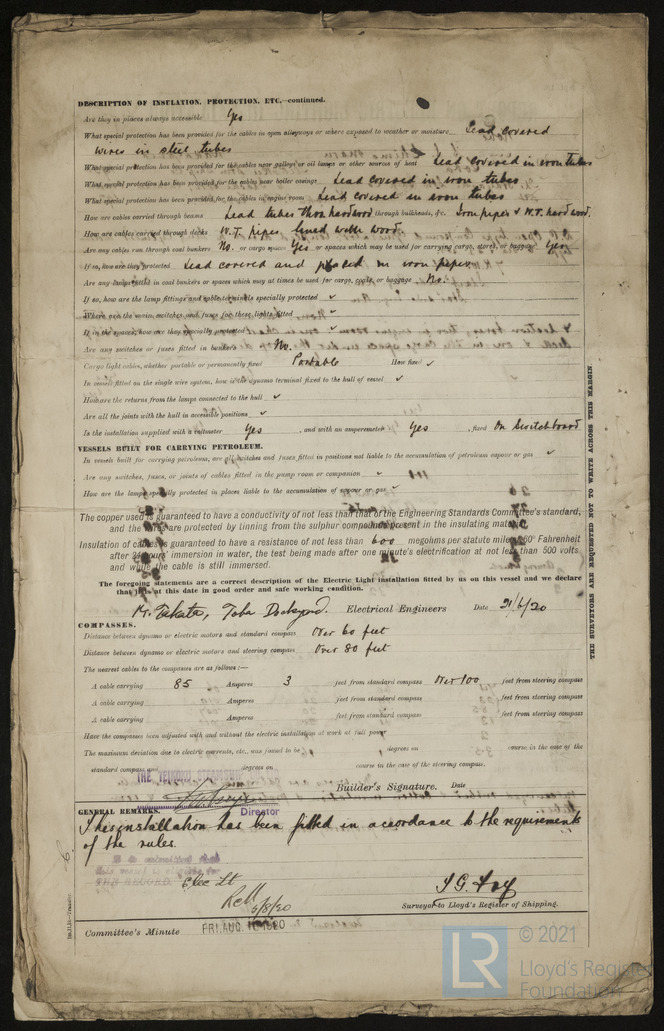 DESCRIPTION OF INSULATION, PROTECTION, ETC.—continued.
Are they in places always accessible Yes
What special protection has been provided for the cables in open alleyways or where exposed to weather or moisture Lead covered
wires in steel tubes
What special protection has been provided for the cables near galleys or oil lamps or other sources of heat Lead covered in iron tubes
What special protection has been provided for the cables near boiler casings Lead covered in iron tubes
What special protection has been provided for the cables in engine room Lead covered in iron tubes
How are cables carried through beams Lead tubes thro hardwood through bulkheads, &c. Iron pipes & W.T. hard wood.
How are cables carried through decks W.T. pipes lined with wood.
Are any cables run through coal bunkers No. or cargo spaces Yes or spaces which may be used for carrying cargo, stores, or baggage Yes
If so, how are they protected Lead covered and placed in iron pipes
Are any lamps fitted in coal bunkers or spaces which may at times be used for cargo, coals, or baggage No.
If so, how are the lamp fittings and cable terminals specially protected ✓
Where are the main switches and fuses for these lights fitted ✓
If in the spaces, how are they specially protected ✓
Are any switches or fuses fitted in bunkers No.
Cargo light cables, whether portable or permanently fixed Portable How fixed ✓
In vessels fitted on the single wire system, how is the dynamo terminal fixed to the hull of vessel ✓
How are the returns from the lamps connected to the hull ✓
Are all the joints with the hull in accessible positions ✓
Is the installation supplied with a voltmeter Yes , and with an amperemeter Yes , fixed On Switchboard
VESSELS BUILT FOR CARRYING PETROLEUM.
In vessels built for carrying petroleum, are all switches and fuses fitted in positions not liable to the accumulation of petroleum vapour or gas ✓
Are any switches, fuses, or joints of cables fitted in the pump room or companion ✓
How are the lamps specially protected in places liable to the accumulation of vapour or gas ✓
The copper used is guaranteed to have a conductivity of not less than that of the Engineering Standards Committee's standard,
and the wires are protected by tinning from the sulphur compounds present in the insulating material.
Insulation of cables is guaranteed to have a resistance of not less than 600 megohms per statute mile at 60° Fahrenheit
after 24 hours' immersion in water, the test being made after one minute's electrification at not less than 500 volts
and while the cable is still immersed.
The foregoing statements are a correct description of the Electric Light installation fitted by us on this vessel and we declare
that this is at this date in good order and safe working condition.
M. Takata, Toba Dockyard. Electrical Engineers Date 21/6/20
COMPASSES.
Distance between dynamo or electric motors and standard compass Over 60 feet
Distance between dynamo or electric motors and steering compass Over 80 feet
The nearest cables to the compasses are as follows:—
A cable carrying 85 Amperes 3 feet from standard compass Over 100 feet from steering compass
A cable carrying Amperes feet from standard compass feet from steering compass
A cable carrying Amperes feet from standard compass feet from steering compass
Have the compasses been adjusted with and without the electric installation at work at full power
The maximum deviation due to electric currents, etc., was found to be degrees on course in the case of the
standard compass and degrees on course in the case of the steering compass.
THE TEIKOKU STEAMSHIP
Builder's Signature. Date
Director
GENERAL REMARKS.
This installation has been fitted in accordance to the requirements
of the rules.
It is submitted that
this vessel is eligible for
THE RECORD. Elec Lt
5/8/20
Surveyor to Lloyd's Register of Shipping.
Committee's Minute FRI. AUG 1920
THE SURVEYORS ARE REQUESTED NOT TO WRITE ACROSS THIS MARGIN.
LR
© 2021
Lloyd's Register
Foundation